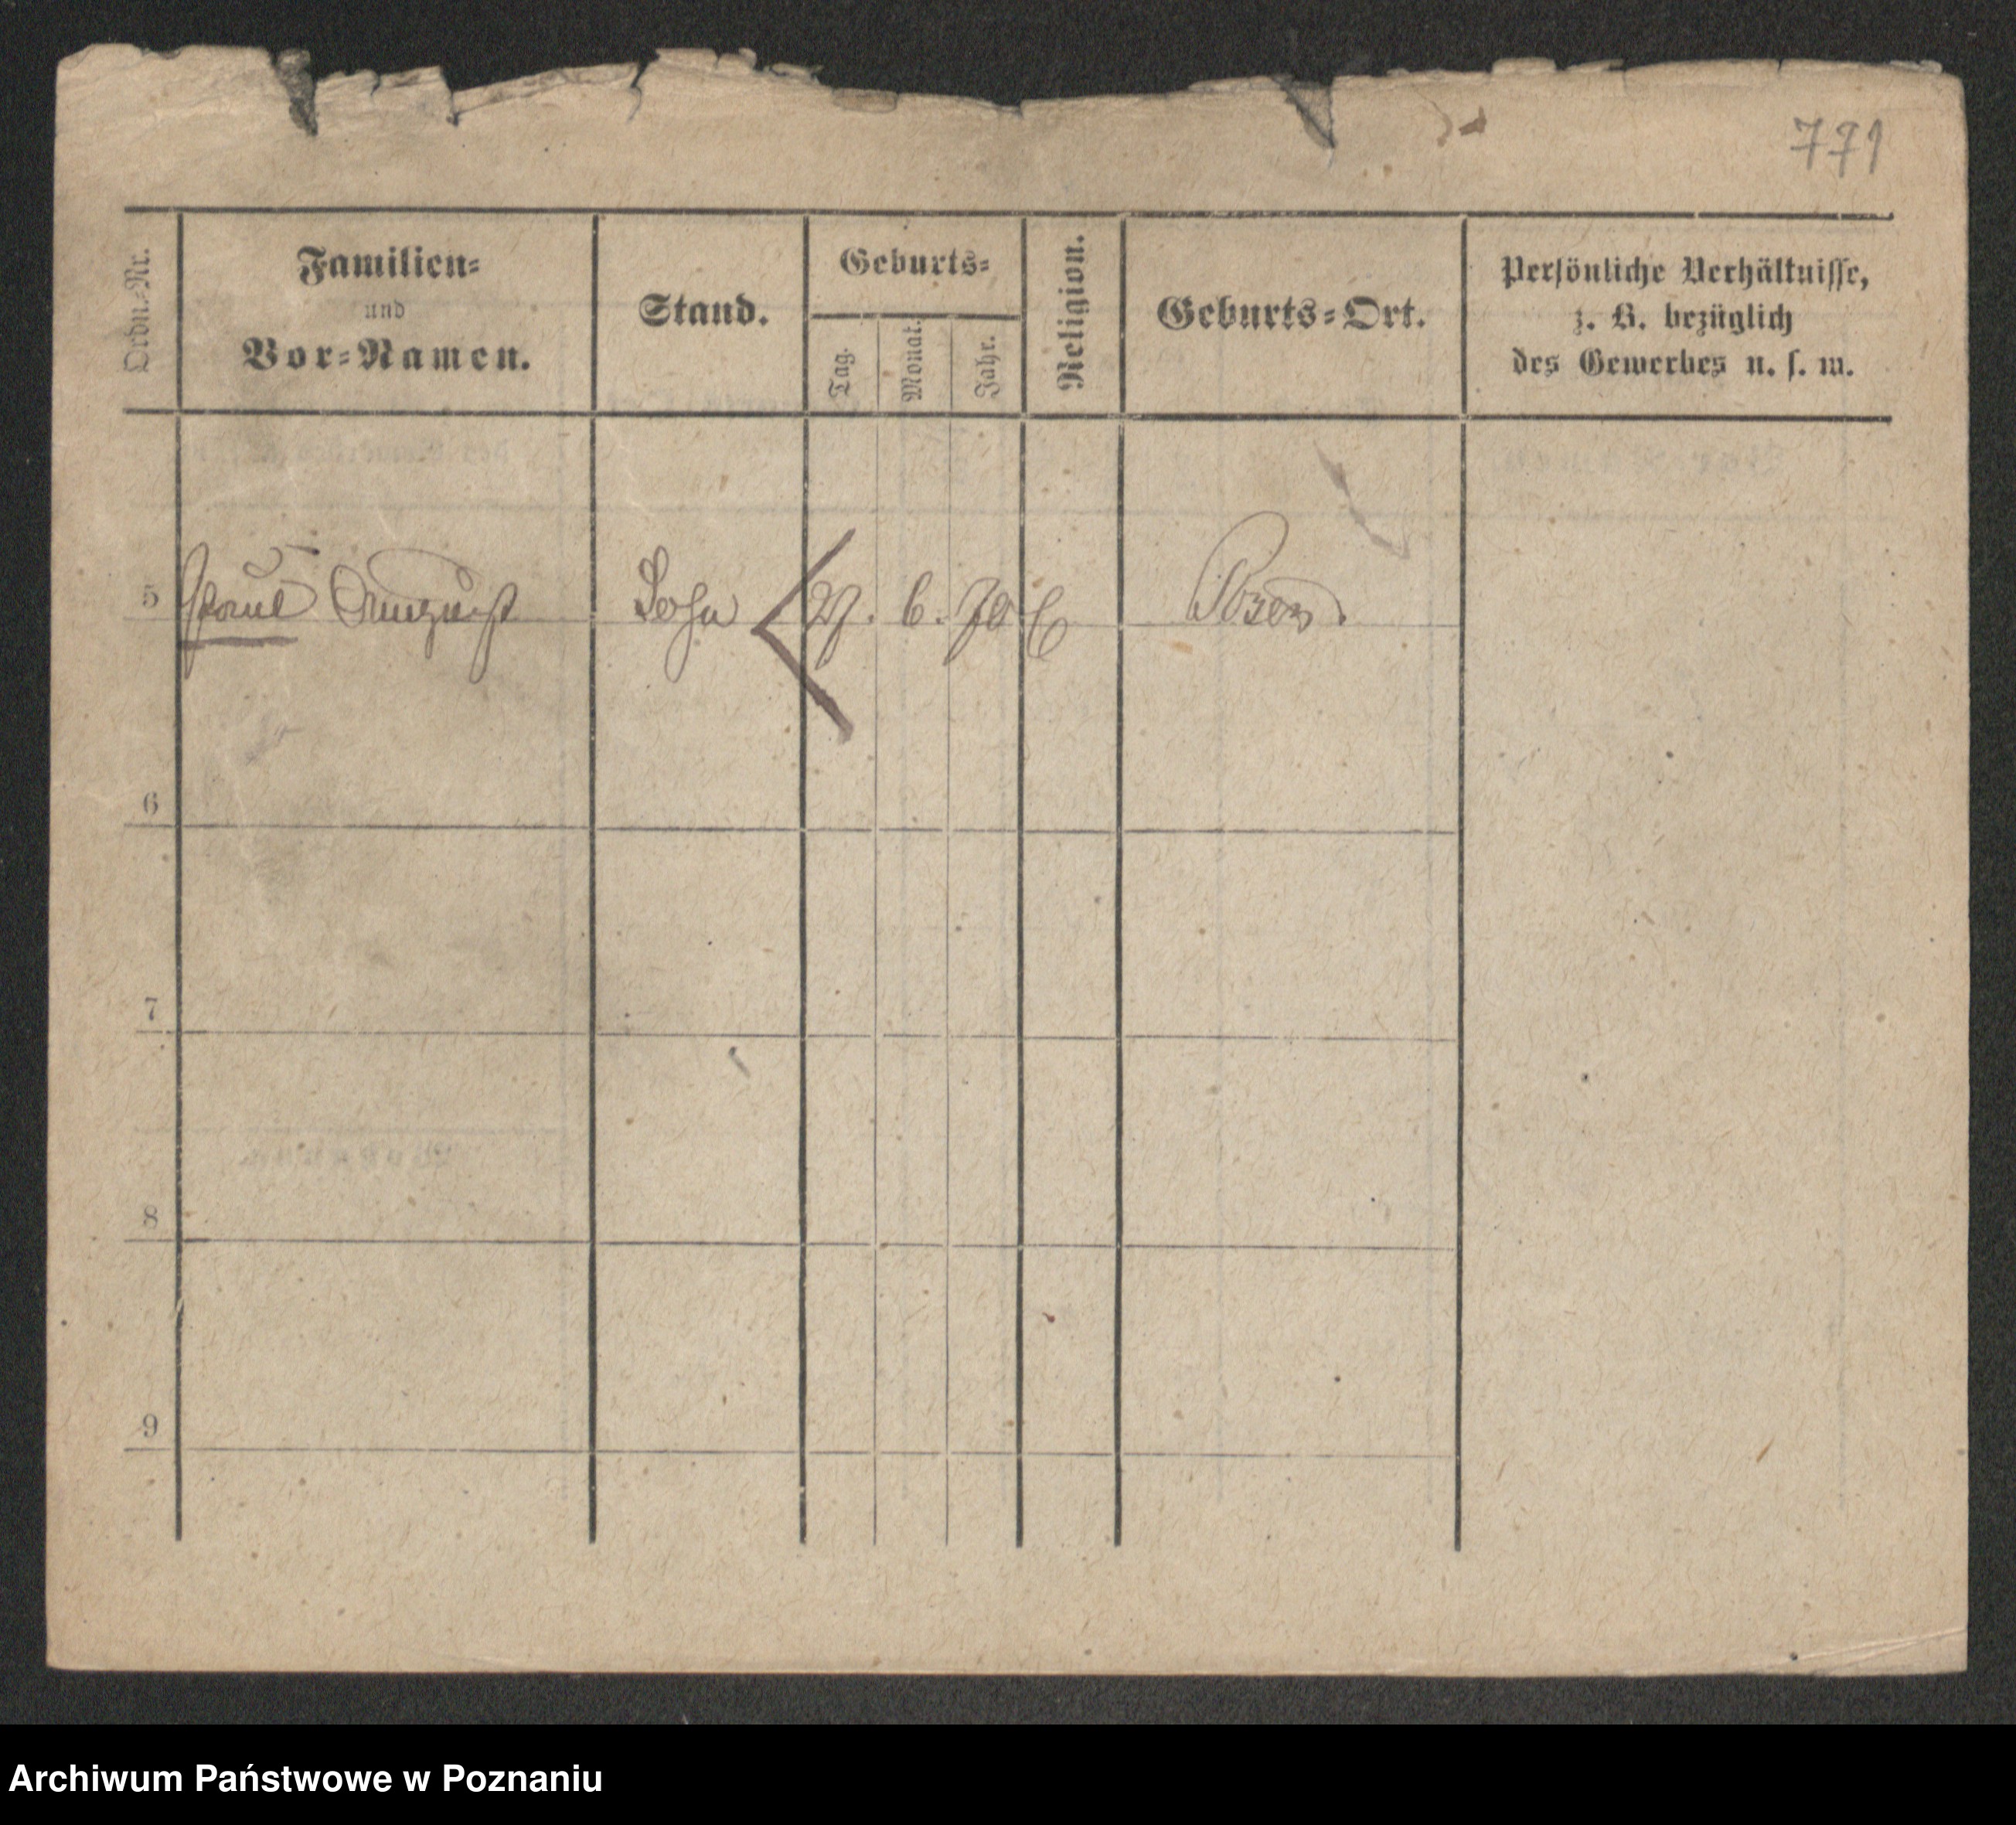 771
Ordn.-Nr.
Familien-
und
Vor-Namen.
Stand.
Geburts-
Tag.
Monat.
Jahr.
Religion.
Geburts-Ort.
Persönliche Verhältnisse,
z. B. bezüglich
des Gewerbes u. s. w.
5 Paul August Sohn 27. 6. 70 Posen.
6
7
8
9
Archiwum Państwowe w Poznaniu